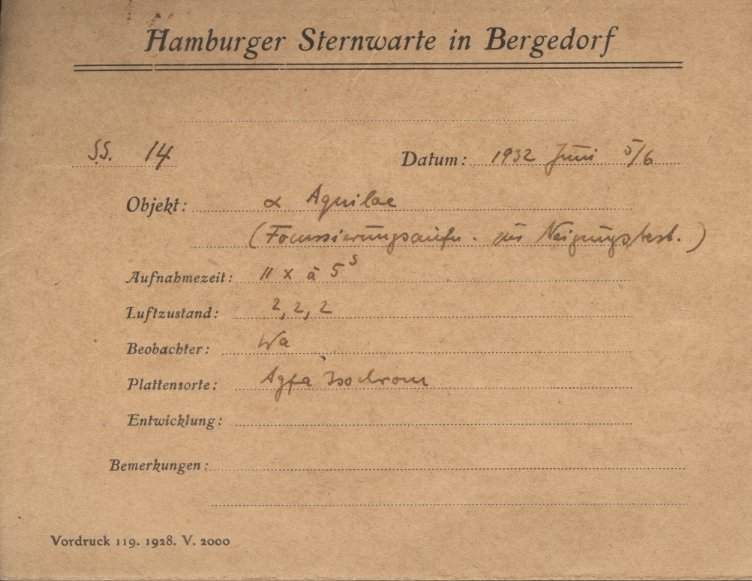 Hamburger Sternwarte in Bergedorf
S.S. 14 Datum: 1932 Juni 5/6
Objekt: α Aquilae
(Focussierungsaufn. zur Neigungsbest.)
Aufnahmezeit: 11 x à 5ˢ
Luftzustand: 2, 2, 2
Beobachter: Wa
Plattensorte: Agfa Isochrom
Entwicklung:
Bemerkungen:
Vordruck 119. 1928. V. 2000